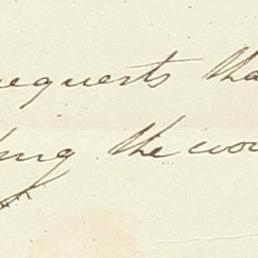 requests tha
ing the wor